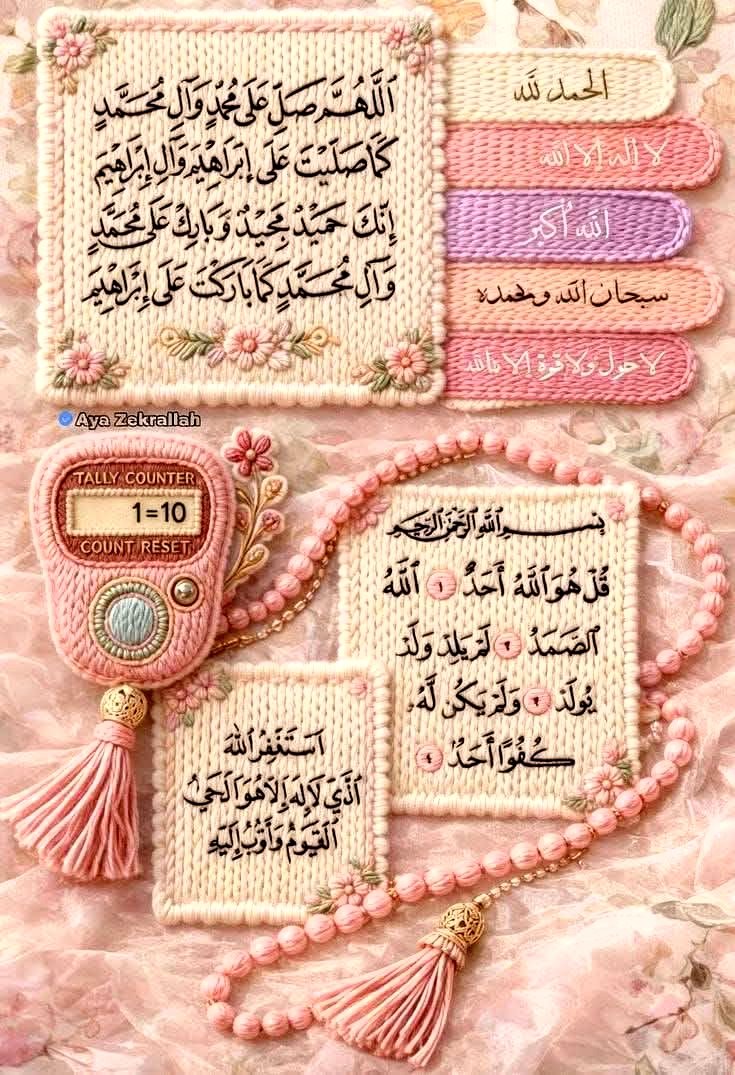 ٱللَّهُمَّ صَلِّ عَلَى مُحَمَّدٍ وَآلِ مُحَمَّدٍ
كَمَا صَلَّيْتَ عَلَى إِبْرَاهِيمَ وَآلِ إِبْرَاهِيمَ
إِنَّكَ حَمِيْدٌ مَجِيْدٌ وَبَارِكْ عَلَى مُحَمَّدٍ
وَآلِ مُحَمَّدٍ كَمَا بَارَكْتَ عَلَى إِبْرَاهِيمَ
الحمد لله
لا إله إلا الله
الله أكبر
سبحان الله وبحمده
لا حول ولا قوة إلا بالله
Aya Zekrallah
TALLY COUNTER
1=10
COUNT RESET
بِسْمِ اللَّهِ الرَّحْمَٰنِ الرَّحِيمِ
قُلْ هُوَ ٱللَّهُ أَحَدٌ ١ ٱللَّهُ
ٱلصَّمَدُ ٢ لَمْ يَلِدْ وَلَمْ
يُولَدْ ٣ وَلَمْ يَكُن لَّهُۥ
كُفُوًا أَحَدٌ ٤
اَسْتَغْفِرُ اللهَ
الَّذِيْ لَا إِلَهَ إِلَّا هُوَ الْحَيُّ
الْقَيُّومُ وَأَتُوْبُ إِلَيْهِ